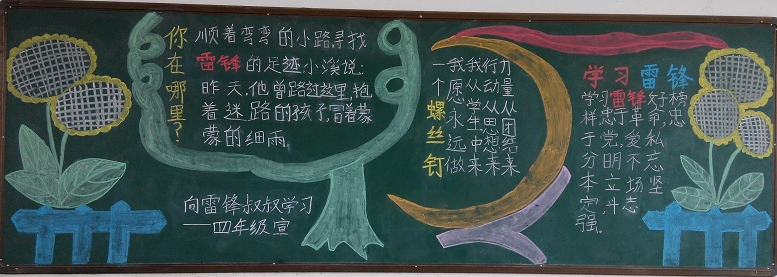 你在哪里？
顺着弯弯的小路，寻找
雷锋的足迹小溪说：
昨天，他曾路过这里，抱
着迷路的孩子，冒着蒙
蒙的细雨。
向雷锋叔叔学习
——四年级宣
力量从团结来
行动从思想来
我从学生中来
我愿永远做
一个螺丝钉
学习雷锋
学习雷锋好榜
样，忠于革命，忠
于党，爱私
分明不忘
本立场坚
定斗志
强。